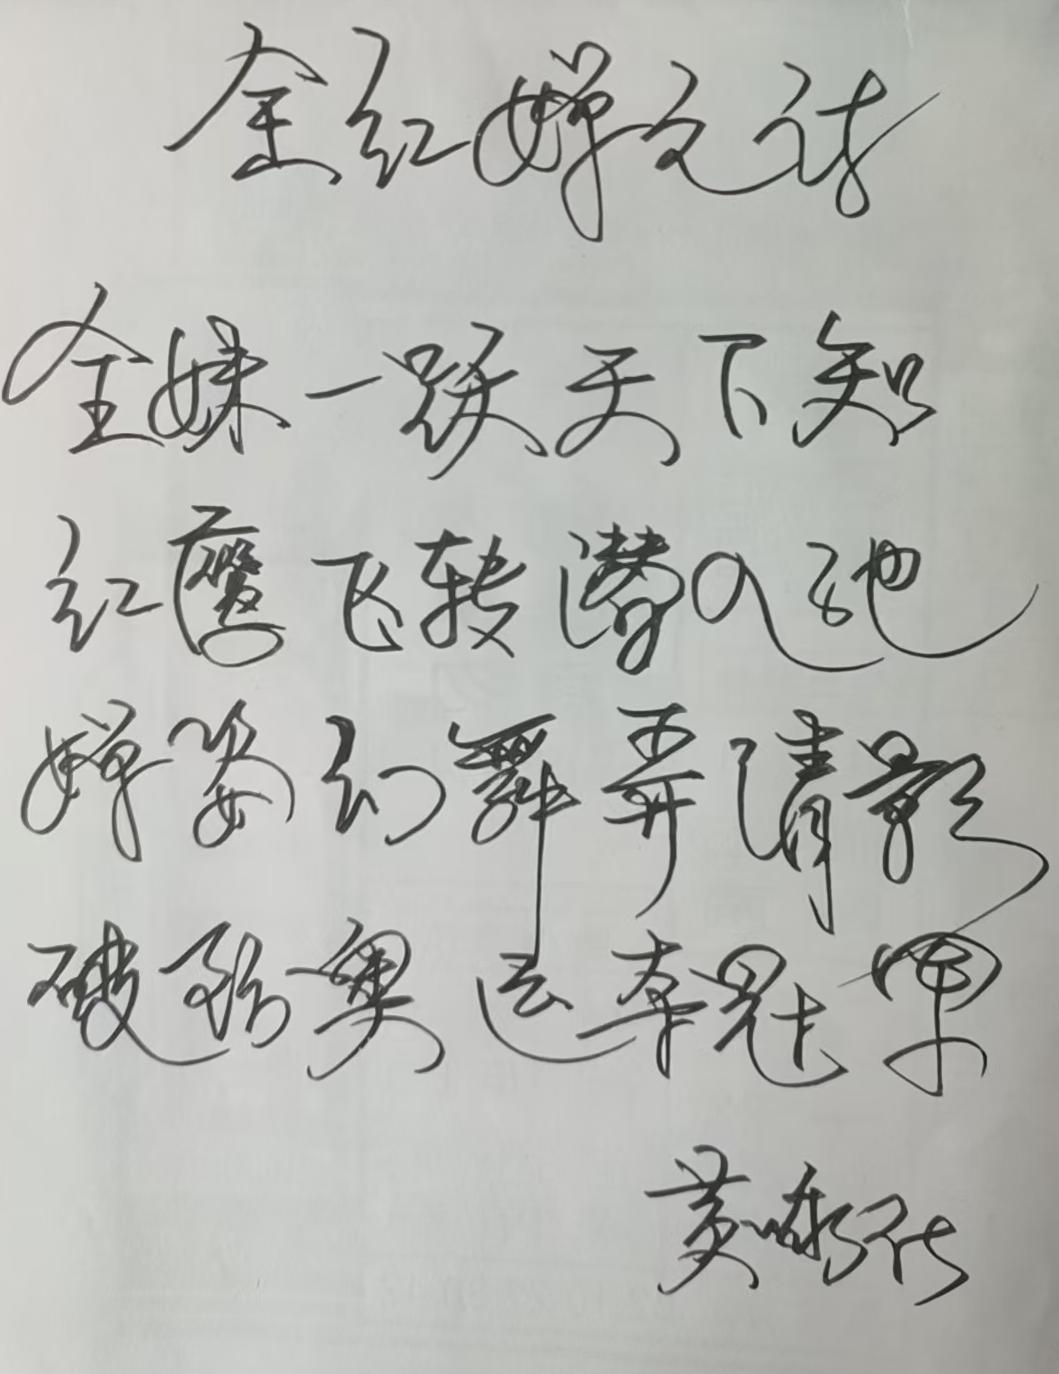 全红婵之诗
全妹一跃天下知
红鹰飞转潜入池
婵姿幻舞弄清影
破孙奥运夺冠军
黄